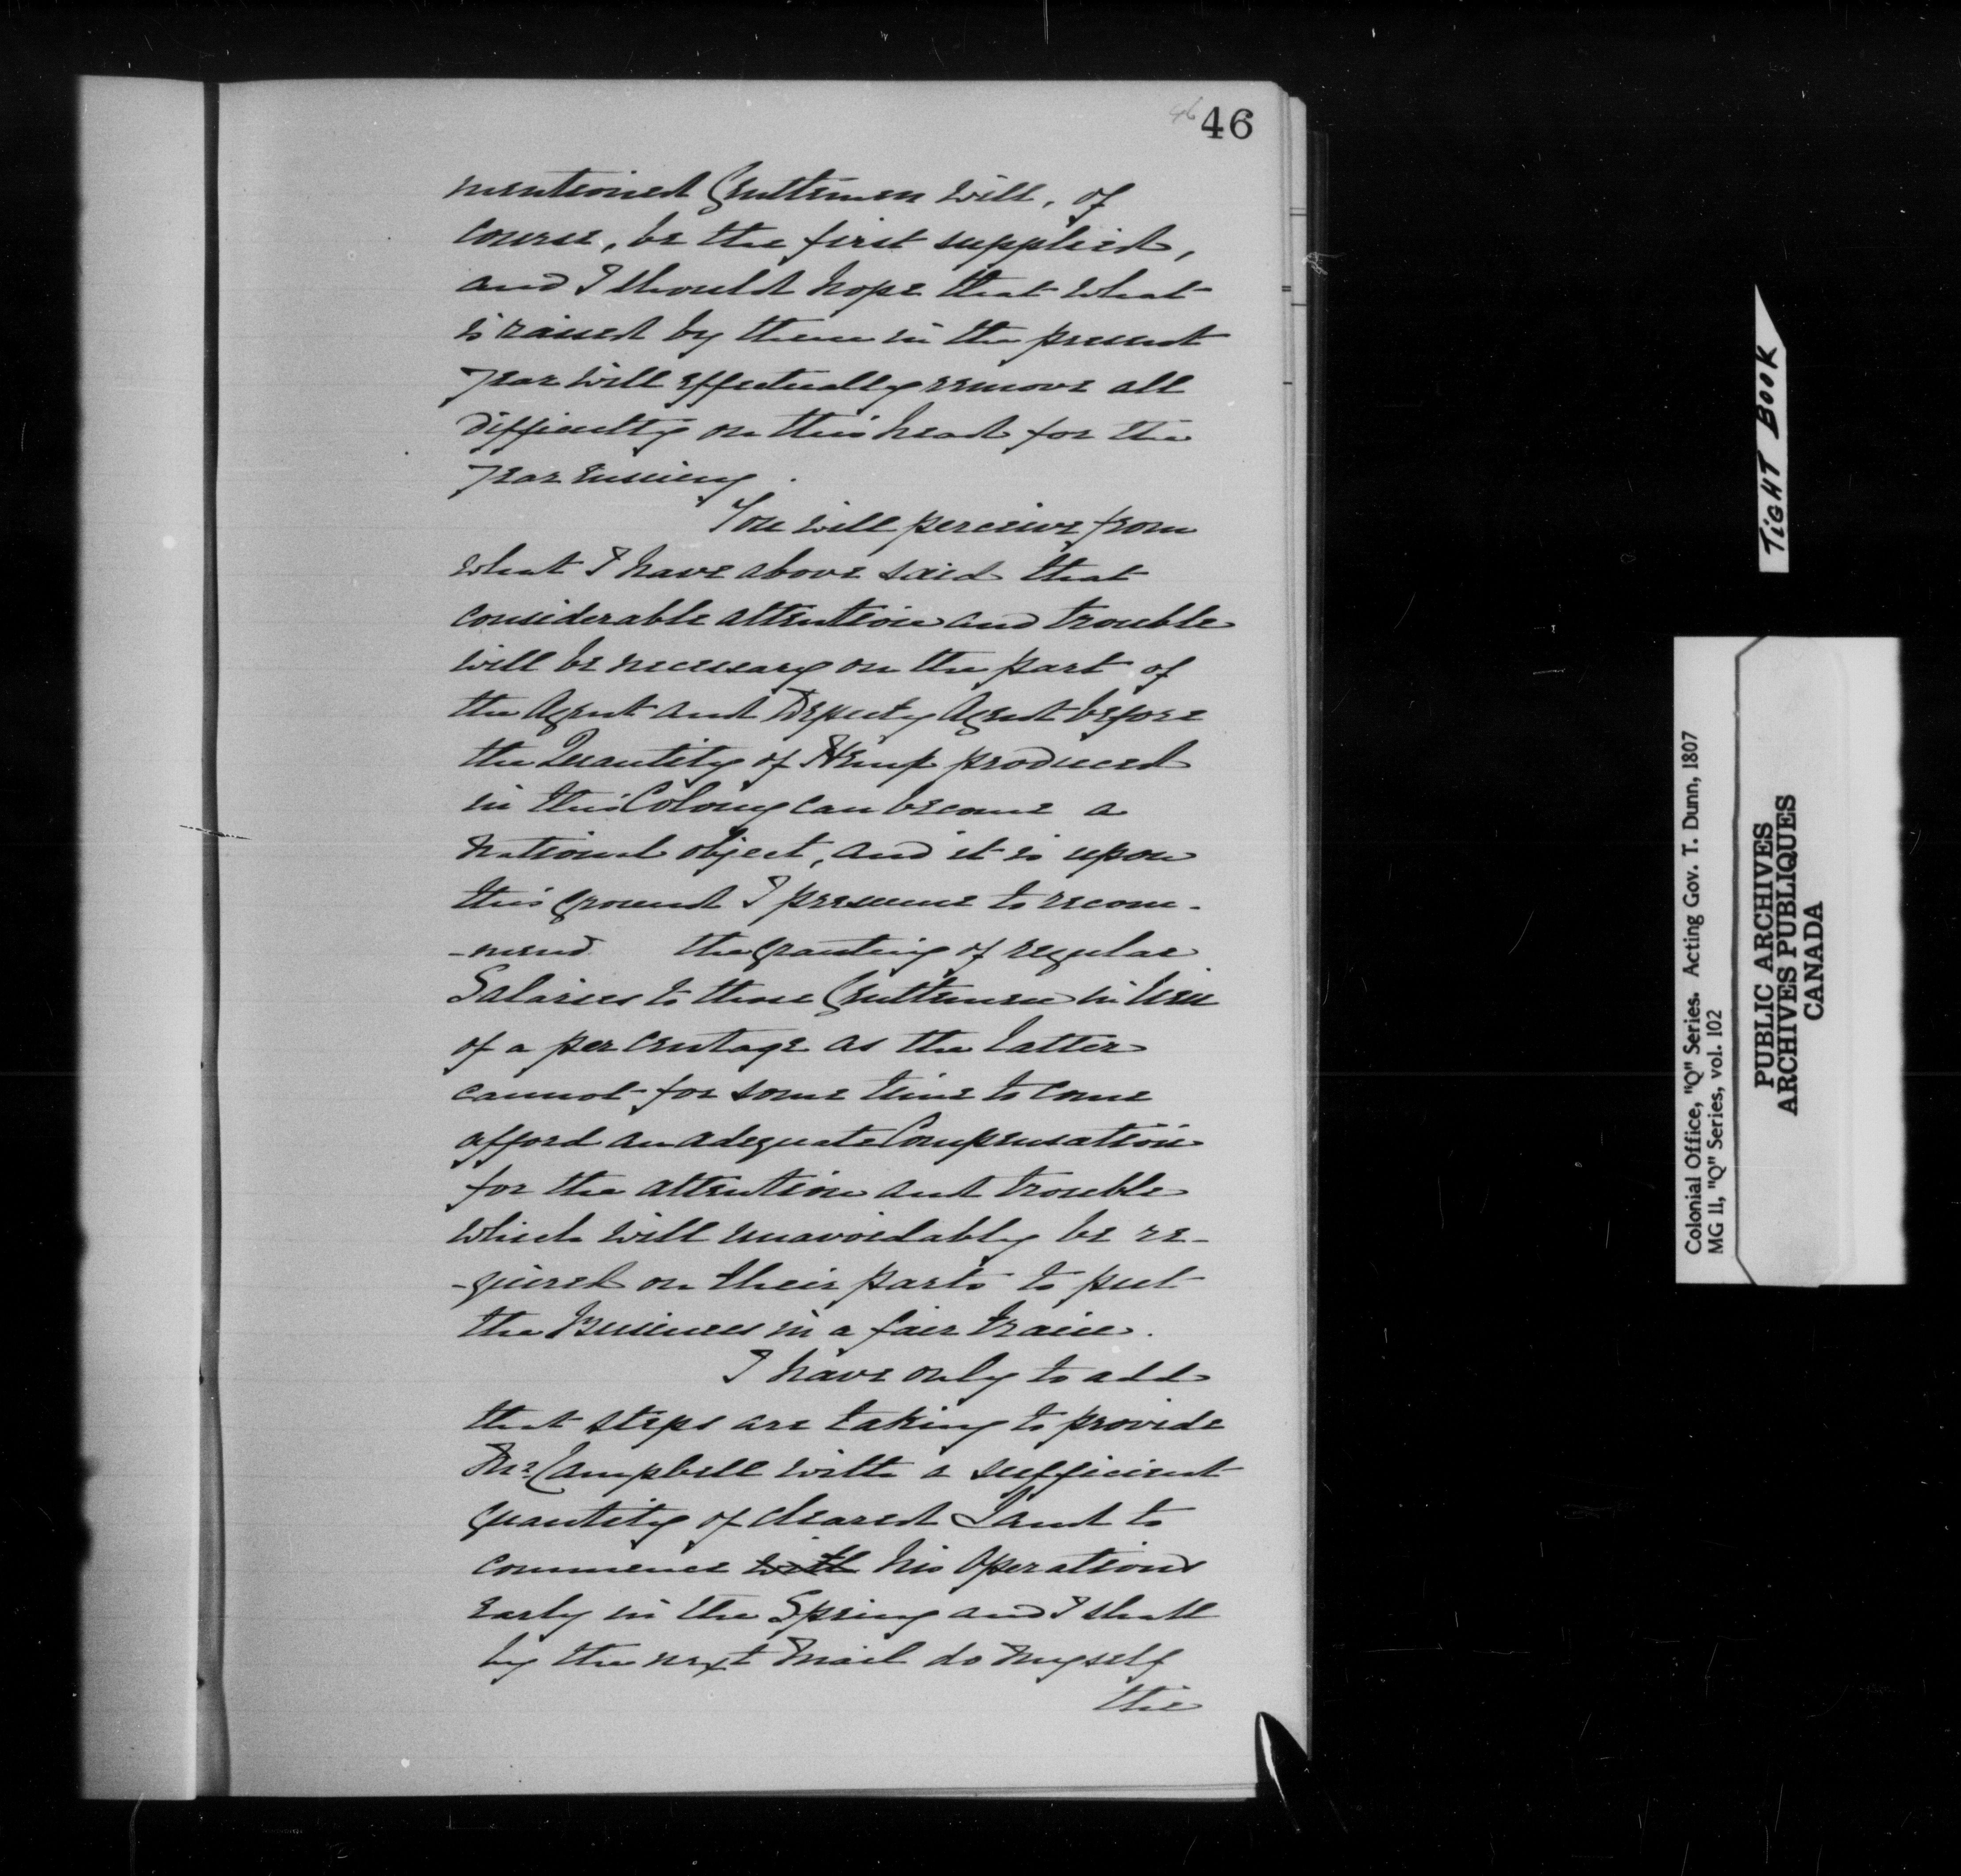 46 46
mentioned Gentlemen will, of
course, be the first supplied,
and I should hope that what
is raised by them in the present
year will effectually remove all
difficulty on this head for the
year ensuing.
You will perceive from
what I have above said that
considerable attention and trouble
will be necessary on the part of
the Agent and Deputy Agent before
the Quantity of Hemp produced
in this Colony can become a
National object, and it is upon
this ground I presume to recom-
-mend the granting of regular
Salaries to these Gentlemen in lieu
of a per centage as the latter
cannot for some time to come
afford an adequate Compensation
for the attention and trouble
which will unavoidably be re-
-quired on their parts to put
the Business in a fair train.
I have only to add
that steps are taking to provide
Mr. Campbell with a sufficient
quantity of cleared Land to
commence with his Operations
early in the Spring and I shall
by the next Mail do myself
the
TIGHT BOOK
Colonial Office, "Q" Series. Acting Gov. T. Dunn, 1807
MG 11, "Q" Series, vol. 102
PUBLIC ARCHIVES
ARCHIVES PUBLIQUES
CANADA